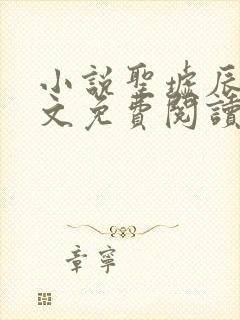 小説聖墟辰
文免費閱讀
章寧